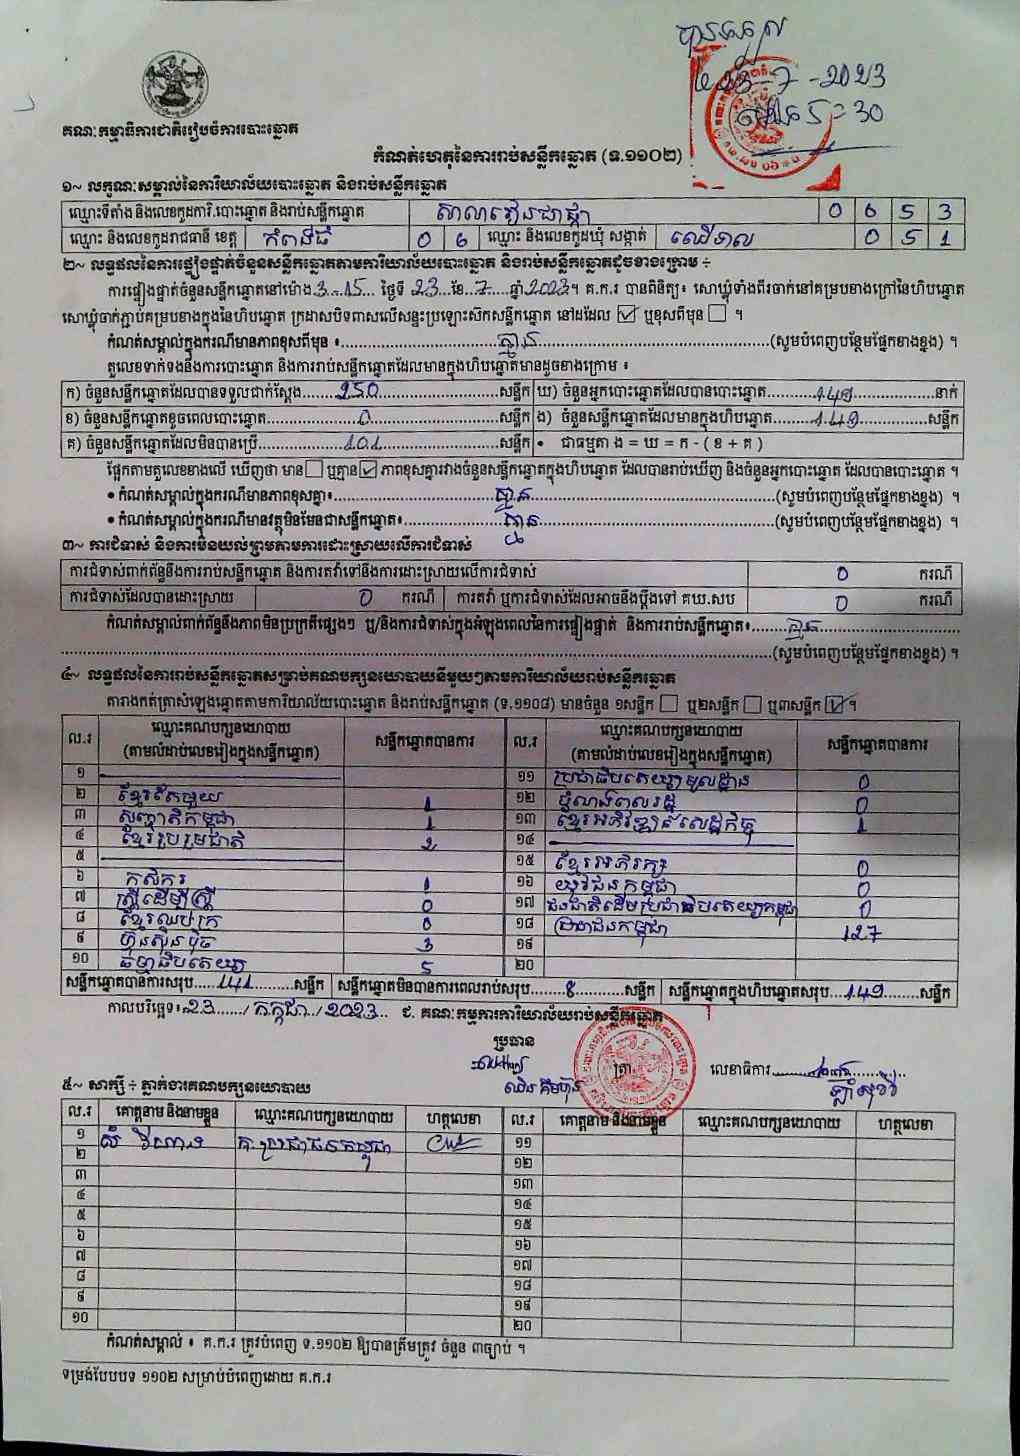 បានទទួល
ថ្ងៃ 23-7-2023
ម៉ោង 5:30
គណៈកម្មាធិការជាតិរៀបចំការបោះឆ្នោត
កំណត់ហេតុនៃការរាប់សន្លឹកឆ្នោត (ទ.១១០២)
១~ លក្ខណៈសម្គាល់នៃការិយាល័យបោះឆ្នោត និងរាប់សន្លឹកឆ្នោត
ឈ្មោះទីតាំង និងលេខកូដការិ.បោះឆ្នោត និងរាប់សន្លឹកឆ្នោត 0 6 5 3
ឈ្មោះ និងលេខកូដរាជធានី ខេត្ត កំពង់ធំ 0 6 ឈ្មោះ និងលេខកូដឃុំ សង្កាត់ ឈើទាល 0 5 1
២~ លទ្ធផលនៃការផ្ទៀងផ្ទាត់ចំនួនសន្លឹកឆ្នោតតាមការិយាល័យបោះឆ្នោត និងរាប់សន្លឹកឆ្នោតដូចខាងក្រោម ÷
ការផ្ទៀងផ្ទាត់ចំនួនសន្លឹកឆ្នោតនៅម៉ោង 3:15 ថ្ងៃទី 23 ខែ 7 ឆ្នាំ 2023។ គ.ក.រ បានពិនិត្យ៖ សោឃ្លុំទាំងពីរចាក់នៅគម្របខាងក្រៅនៃហិបឆ្នោត
សោឃ្លុំចាក់ភ្ជាប់គម្របខាងក្នុងនៃហិបឆ្នោត ក្រដាសបិទពាសលើសន្ទះប្រឡោះស៊កសន្លឹកឆ្នោត នៅដដែល ☑ ឬខុសពីមុន ☐ ។
កំណត់សម្គាល់ក្នុងករណីមានភាពខុសពីមុន ៖ គ្មាន (សូមបំពេញបន្ថែមផ្នែកខាងខ្នង) ។
តួលេខទាក់ទងនឹងការបោះឆ្នោត និងការរាប់សន្លឹកឆ្នោតដែលមានក្នុងហិបឆ្នោតមានដូចខាងក្រោម ៖
ក) ចំនួនសន្លឹកឆ្នោតដែលបានទទួលជាក់ស្តែង 250 សន្លឹក ឃ) ចំនួនអ្នកបោះឆ្នោតដែលបានបោះឆ្នោត 149 នាក់
ខ) ចំនួនសន្លឹកឆ្នោតខូចពេលបោះឆ្នោត 0 សន្លឹក ង) ចំនួនសន្លឹកឆ្នោតដែលមានក្នុងហិបឆ្នោត 149 សន្លឹក
គ) ចំនួនសន្លឹកឆ្នោតដែលមិនបានប្រើ 101 សន្លឹក • ជាធម្មតា ង = ឃ = ក - ( ខ + គ )
ផ្អែកតាមតួលេខខាងលើ ឃើញថា មាន ☐ ឬគ្មាន ☑ ភាពខុសគ្នារវាងចំនួនសន្លឹកឆ្នោតក្នុងហិបឆ្នោត ដែលបានរាប់ឃើញ និងចំនួនអ្នកបោះឆ្នោត ដែលបានបោះឆ្នោត ។
• កំណត់សម្គាល់ក្នុងករណីមានភាពខុសគ្នា៖ គ្មាន (សូមបំពេញបន្ថែមផ្នែកខាងខ្នង) ។
• កំណត់សម្គាល់ក្នុងករណីមានវត្ថុមិនមែនជាសន្លឹកឆ្នោត៖ គ្មាន (សូមបំពេញបន្ថែមផ្នែកខាងខ្នង) ។
៣~ ការជំទាស់ និងការមិនយល់ព្រមតាមការដោះស្រាយលើការជំទាស់
ការជំទាស់ពាក់ព័ន្ធនឹងការរាប់សន្លឹកឆ្នោត និងការតវ៉ាទៅនឹងការដោះស្រាយលើការជំទាស់ 0 ករណី
ការជំទាស់ដែលបានដោះស្រាយ 0 ករណី ការតវ៉ា ឬការជំទាស់ដែលអាចនឹងប្តឹងទៅ គឃ.សប 0 ករណី
កំណត់សម្គាល់ពាក់ព័ន្ធនឹងភាពមិនប្រក្រតីផ្សេងៗ ឬ/និងការជំទាស់ក្នុងអំឡុងពេលនៃការផ្ទៀងផ្ទាត់ និងការរាប់សន្លឹកឆ្នោត៖ គ្មាន
(សូមបំពេញបន្ថែមផ្នែកខាងខ្នង) ។
៤~ លទ្ធផលនៃការរាប់សន្លឹកឆ្នោតសម្រាប់គណបក្សនយោបាយនីមួយៗតាមការិយាល័យរាប់សន្លឹកឆ្នោត
តារាងកត់ត្រាសំឡេងឆ្នោតតាមការិយាល័យបោះឆ្នោត និងរាប់សន្លឹកឆ្នោត (ទ.១១០៨) មានចំនួន ១សន្លឹក ☐ ឬ២សន្លឹក ☐ ឬ៣សន្លឹក ☑ ។
ល.រ ឈ្មោះគណបក្សនយោបាយ (តាមលំដាប់លេខរៀងក្នុងសន្លឹកឆ្នោត) សន្លឹកឆ្នោតបានការ ល.រ ឈ្មោះគណបក្សនយោបាយ (តាមលំដាប់លេខរៀងក្នុងសន្លឹកឆ្នោត) សន្លឹកឆ្នោតបានការ
១ ១១ ប្រជាធិបតេយ្យមូលដ្ឋាន 0
២ ខ្មែរតែមួយ 1 ១២ ជំនាន់ពលរដ្ឋ 0
៣ សញ្ជាតិកម្ពុជា 1 ១៣ ខ្មែរអភិវឌ្ឍន៍សេដ្ឋកិច្ច 1
៤ ខ្មែររួបរួមជាតិ 2 ១៤
៥ ១៥ ខ្មែរអភិរក្ស 0
៦ កសិករ 1 ១៦ យុវជនកម្ពុជា 0
៧ ស្ត្រីដើម្បីស្ត្រី 0 ១៧ ជនជាតិដើមប្រជាធិបតេយ្យកម្ពុជា 0
៨ ខ្មែរឈប់ក្រ 0 ១៨ ប្រជាជនកម្ពុជា 127
៩ ហ៊្វុនស៊ិនប៉ិច 3 ១៩
១០ ធម្មាធិបតេយ្យ 5 ២០
សន្លឹកឆ្នោតបានការសរុប 141 សន្លឹក សន្លឹកឆ្នោតមិនបានការពេលរាប់សរុប 8 សន្លឹក សន្លឹកឆ្នោតក្នុងហិបឆ្នោតសរុប 149 សន្លឹក
កាលបរិច្ឆេទ៖ 23 / កក្កដា / 2023 ជ. គណៈកម្មការការិយាល័យរាប់សន្លឹកឆ្នោត
ប្រធាន ត្រា លេខាធិការ
៥~ សាក្សី ÷ ភ្នាក់ងារគណបក្សនយោបាយ
ល.រ គោត្តនាម និងនាមខ្លួន ឈ្មោះគណបក្សនយោបាយ ហត្ថលេខា ល.រ គោត្តនាម និងនាមខ្លួន ឈ្មោះគណបក្សនយោបាយ ហត្ថលេខា
១ គ.ប្រជាជនកម្ពុជា ១១
២ ១២
៣ ១៣
៤ ១៤
៥ ១៥
៦ ១៦
៧ ១៧
៨ ១៨
៩ ១៩
១០ ២០
កំណត់សម្គាល់ ៖ គ.ក.រ ត្រូវបំពេញ ទ.១១០២ ឱ្យបានត្រឹមត្រូវ ចំនួន ៣ច្បាប់ ។
ទម្រង់បែបបទ ១១០២ សម្រាប់បំពេញដោយ គ.ក.រ